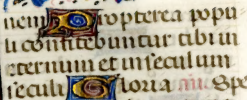 nem Propterea popu
li confitebuntur tibi in
eternum et in seculum
seculi Gloria